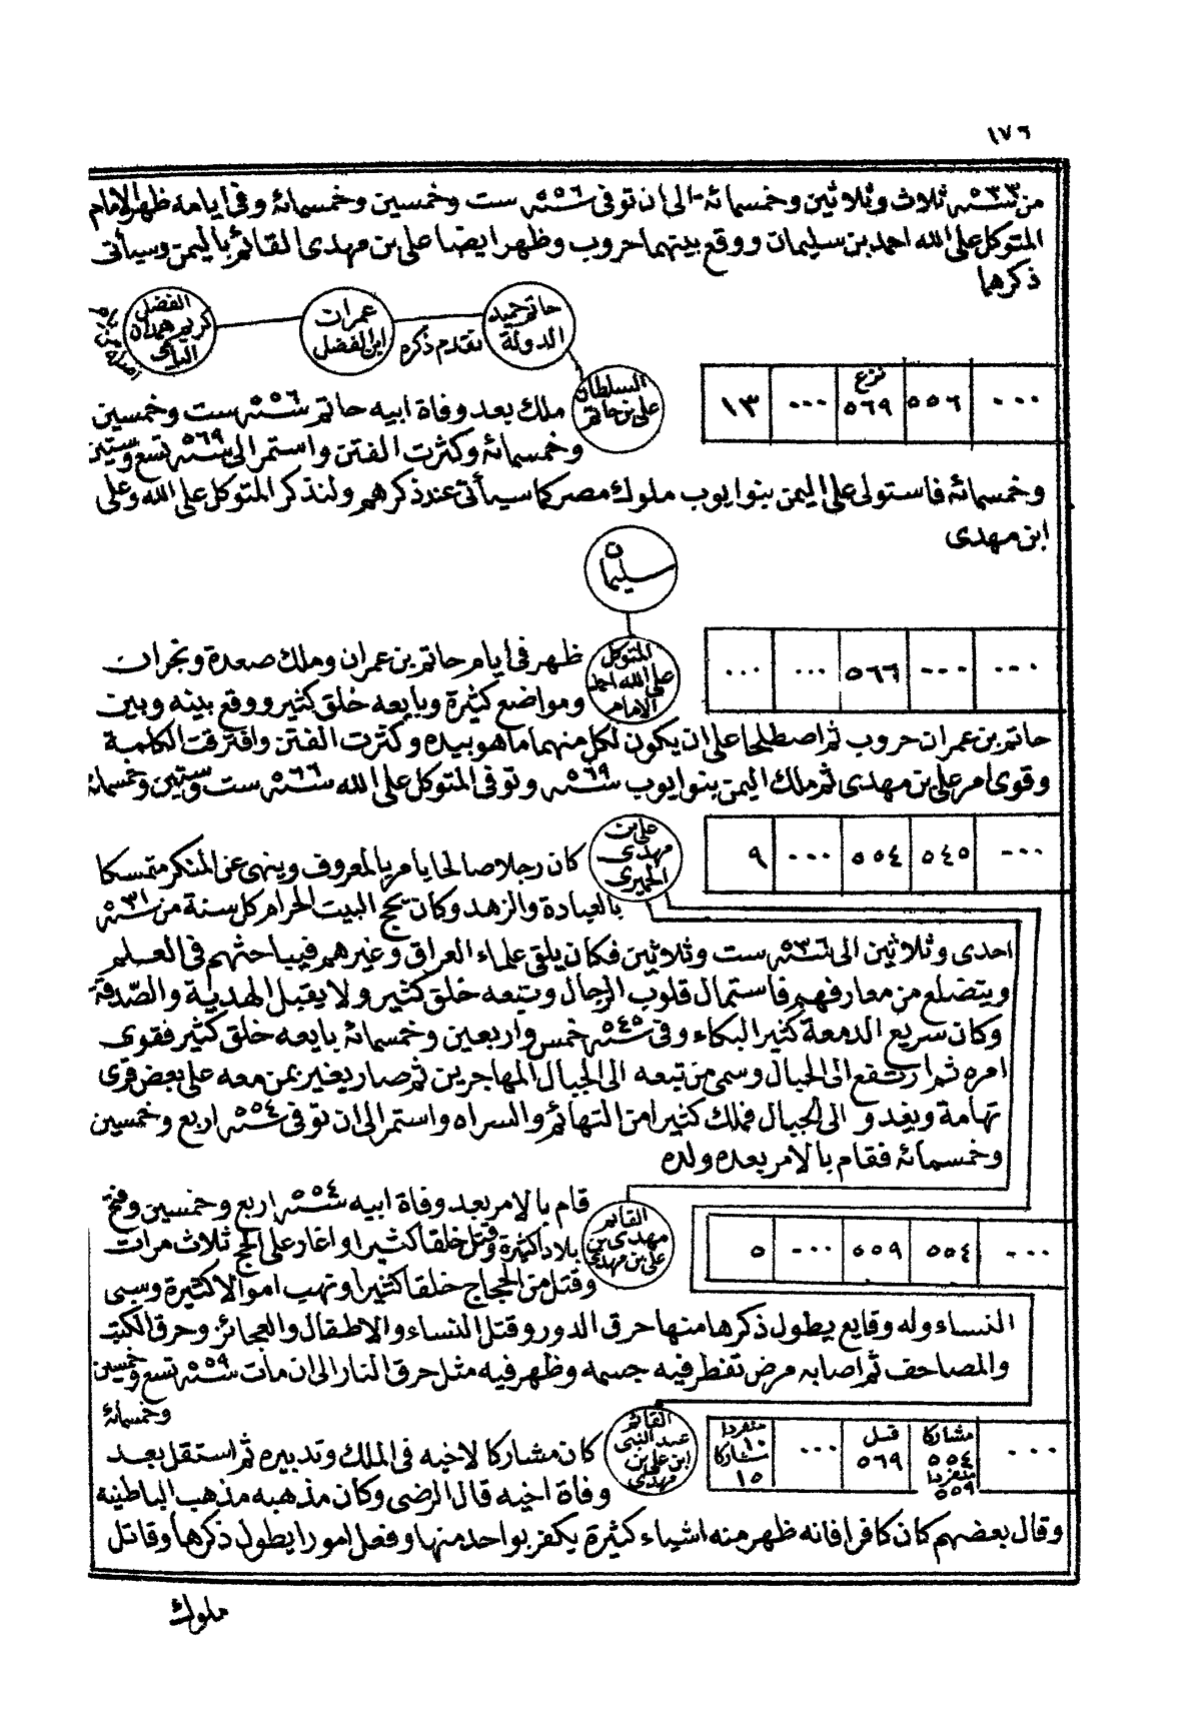 ١٧٦
من سنة ٥٣٣ ثلاث وثلاثين وخمسمائة الى ان توفى سنة ٥٥٦ ست وخمسين وخمسمائة وفى ايامه ظهر الامام
المتوكل على الله احمد بن سليمان ووقع بينهما حروب وظهر ايضا على بن مهدى القائم باليمن وسيأتى
ذكرهما
حاتم حميد الدولة
تقدم ذكره
عمران ابن الفضل
الفضل كريم همدان
السلطان على بن حاتم
٠٠٠ ٥٥٦ نزع ٥٦٩ ٠٠٠ ١٣
ملك بعد وفاة ابيه حاتم سنة ٥٥٦ ست وخمسين
وخمسمائة وكثرت الفتن واستمر الى سنة ٥٦٩ تسع وستين
وخمسمائة فاستولى على اليمن بنوا يوب ملوك مصر كما سيأتى عند ذكرهم ولنذكر المتوكل على الله وعلى
ابن مهدى
سليمان
المتوكل على الله احمد الامام
٠٠٠ ٠٠٠ ٥٦٦ ٠٠٠ ٠٠٠
ظهر فى ايام حاتم بن عمران وملك صعدة ونجران
ومواضع كثيرة وبايعه خلق كثير ووقع بينه وبين
حاتم بن عمران حروب ثم اصطلحا على ان يكون لكل منهما ما هو بيده وكثرت الفتن وافترقت الكلمة
وقوى امر على بن مهدى ثم ملك اليمن بنوا يوب سنة ٥٦٩ وتوفى المتوكل على الله سنة ٥٦٦ ست وستين وخمسمائة
على بن مهدى الحميرى
٠٠٠ ٥٤٥ ٥٥٤ ٠٠٠ ٩
كان رجلا صالحا يأمر بالمعروف وينهى عن المنكر متمسكا
بالعبادة والزهد وكان يحج البيت الحرام كل سنة من سنة ٥٣١
احدى وثلاثين الى سنة ٥٣٦ ست وثلاثين فكان يلقى علماء العراق وغيرهم فيباحثهم فى العلم
ويتضلع من معارفهم فاستمال قلوب الرجال وتبعه خلق كثير ولا يقبل الهدية والصدقة
وكان سريع الدمعة كثير البكاء وفى سنة ٥٤٥ خمس واربعين وخمسمائة بايعه خلق كثير فقوى
امره ثم ارتفع الى الجبال وسمى من تبعه الى الجبال المهاجرين ثم صار يغير بمن معه على بعض قرى
تهامة ويغدو الى الجبال فملك كثيرا من التهائم والسراه واستمر الى ان توفى سنة ٥٥٤ اربع وخمسين
وخمسمائة فقام بالامر بعده ولده
القائم مهدى بن على بن مهدى
٠٠٠ ٥٥٤ ٥٥٩ ٠٠٠ ٥
قام بالامر بعد وفاة ابيه سنة ٥٥٤ اربع وخمسين وفتح
بلادا كثيرة وقتل خلقا كثيرا واغار على الحج ثلاث مرات
وقتل من الحجاج خلقا كثيرا ونهب اموالا كثيرة وسبى
النساء وله وقايع يطول ذكرها منها حرق الدور وقتل النساء والاطفال والعجائز وحرق الكتب
والمصاحف ثم اصابه مرض تفطر فيه جسمه وظهر فيه مثل حرق النار الى ان مات سنة ٥٥٩ تسع وخمسين
وخمسمائة
القائم عبد النبى ابن على بن مهدى
٠٠٠ مشاركا ٥٥٤ منفردا ٥٥٩ قتل ٥٦٩ ٠٠٠ منفردا ١٠ مشاركا ١٥
كان مشاركا لاخيه فى الملك وتدبيره ثم استقل بعد
وفاة اخيه قال الرضى وكان مذهبه مذهب الباطنية
وقال بعضهم كان كافرا فانه ظهر منه اشياء كثيرة يكفر بواحد منها وفعل امورا يطول ذكرها وقاتل
ملوك